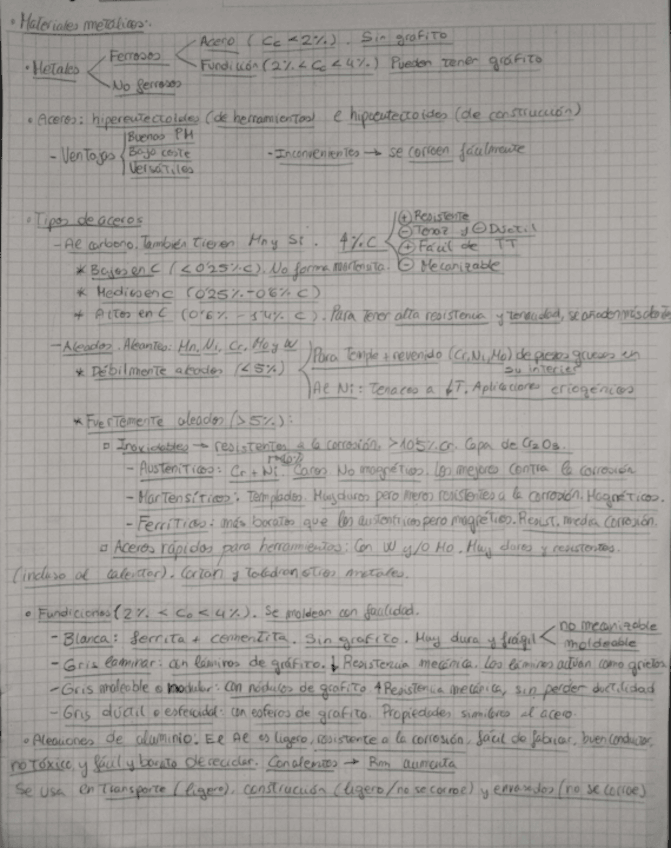 • Materiales metálicos:
Acero (Cc < 2%). Sin grafito
Ferrosos
• Metales
Fundición (2% < Cc < 4%) Pueden tener grafito
No ferrosos
• Aceros: hipereutectoides (de herramientas) e hipoeutectoides (de construcción)
- Ventajas
Buenas PM
Bajo coste
Versátiles
- Inconvenientes → se corroen fácilmente
• Tipos de aceros
- Al carbono. También tienen Mn y Si. ↑%C
⊕ Resistente
⊖ Tenaz y ⊖ Ductil
⊕ Fácil de TT
⊖ Mecanizable
* Bajos en C (<0'25% C). No forma martensita.
* Medios en C (0'25% - 0'6% C)
* Altos en C (0'6% - 1'4% C). Para tener alta resistencia y tenacidad, se añaden más
- Aleados. Aleantes: Mn, Ni, Cr, Mo y W
* Débilmente aleados (<5%)
Para Temple + revenido (Cr, Ni, Mo) de piezas gruesas en su interior
Al Ni: Tenaces a ↓T. Aplicaciones criogénicas
* Fuertemente aleados (>5%):
▫ Inoxidables → resistentes a la corrosión, >10'5% Cr. Capa de Cr₂O₃.
- Austeníticos: Cr + Ni. Caros. No magnéticos. Los mejores contra la corrosión
- Martensíticos: Templados. Muy duros pero menos resistentes a la corrosión. Magnéticos.
- Ferríticos: más baratos que los austeníticos pero magnéticos. Resist. media corrosión.
▫ Aceros rápidos para herramientas: Con W y/o Mo. Muy duros y resistentes.
(incluso al calor). Cortan y taladran otros metales.
• Fundiciones (2% < Cc < 4%). Se moldean con facilidad.
- Blanca: ferrita + cementita. Sin grafito. Muy dura y frágil
no mecanizable
moldeable
- Gris laminar: con láminas de grafito. ↓ Resistencia mecánica. Las láminas actúan como grietas.
- Gris maleable o nodular: con nódulos de grafito ↑ Resistencia mecánica, sin perder ductilidad
- Gris dúctil o esferoidal: con esferas de grafito. Propiedades similares al acero.
• Aleaciones de aluminio. El Al es ligero, resistente a la corrosión, fácil de fabricar, buen conductor,
no tóxico y fácil y barato de reciclar. Con aleantes → Rm aumenta
Se usa en Transporte (ligero), construcción (ligero/no se corroe) y envasados (no se corroe)